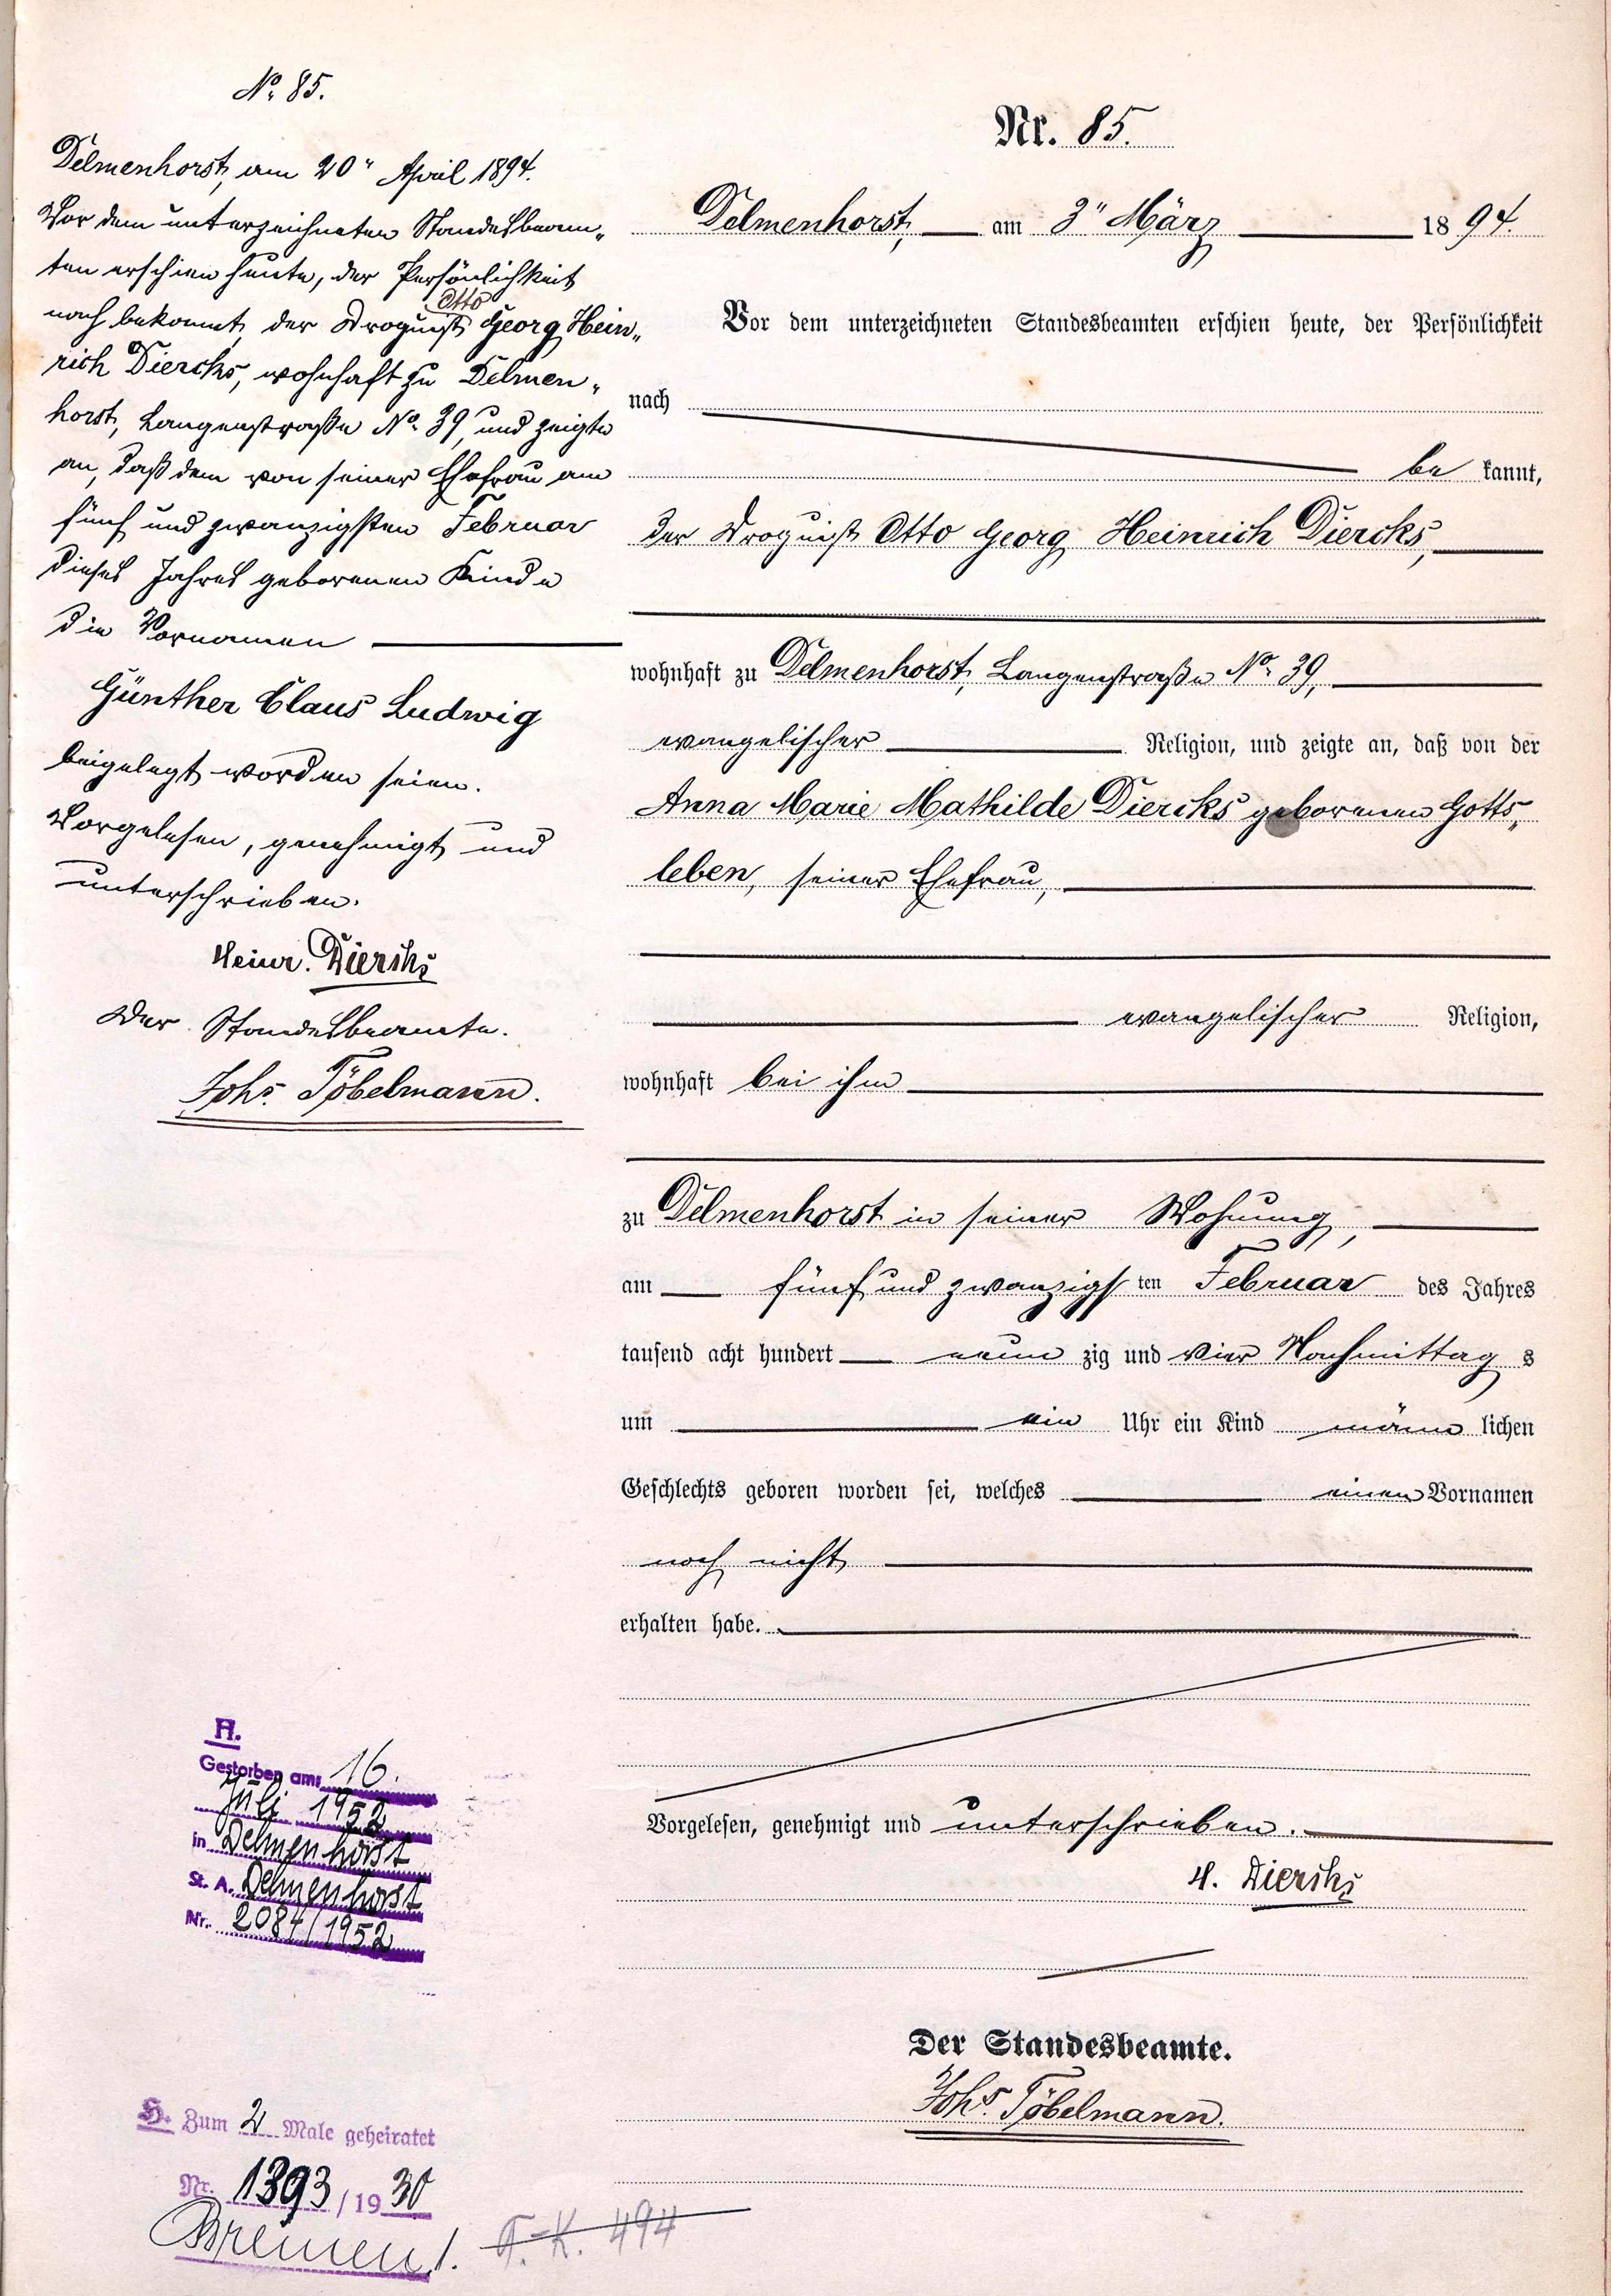 No. 85.
Delmenhorst, am 20" April 1894.
Vor dem unterzeichneten Standesbeam„
ten erschien heute, der Persönlichkeit
Otto
nach bekannt, der Droguist Georg Hein„
rich Diercks, wohnhaft zu Delmen„
horst, Langenstraße No. 39, und zeigte
an, daß dem von seiner Ehefrau am
fünf und zwanzigsten Februar
dieses Jahres geborenen Kinde
die Vornamen
Günther Claus Ludwig
beigelegt worden seien.
Vorgelesen, genehmigt und
unterschrieben.
Heinr. Diercks
Der Standesbeamte.
Johs. Töbelmann.
Nr. 85.
Delmenhorst, am 3" März 1894.
Vor dem unterzeichneten Standesbeamten erschien heute, der Persönlichkeit
nach
be kannt,
der Droguist Otto Georg Heinrich Diercks,
wohnhaft zu Delmenhorst, Langenstraße No. 39,
evangelischer Religion, und zeigte an, daß von der
Anna Marie Mathilde Diercks geborenen Gotts„
leben, seiner Ehefrau,
evangelischer Religion,
wohnhaft bei ihm
zu Delmenhorst in seiner Wohnung,
am fünf und zwanzigsten Februar des Jahres
tausend acht hundert neun zig und vier Nachmittag s
um ein Uhr ein Kind männ lichen
Geschlechts geboren worden sei, welches einen Vornamen
noch nicht
erhalten habe.
Vorgelesen, genehmigt und unterschrieben.
H. Diercks
Der Standesbeamte.
Johs. Töbelmann.
H.
Gestorben am: 16.
Juli 1952
in Delmenhorst
St. A. Delmenhorst
Nr. 208/1952
H. Zum 2 Male geheiratet
Nr. 1393/1930
Bremen I.
F.-K. 494